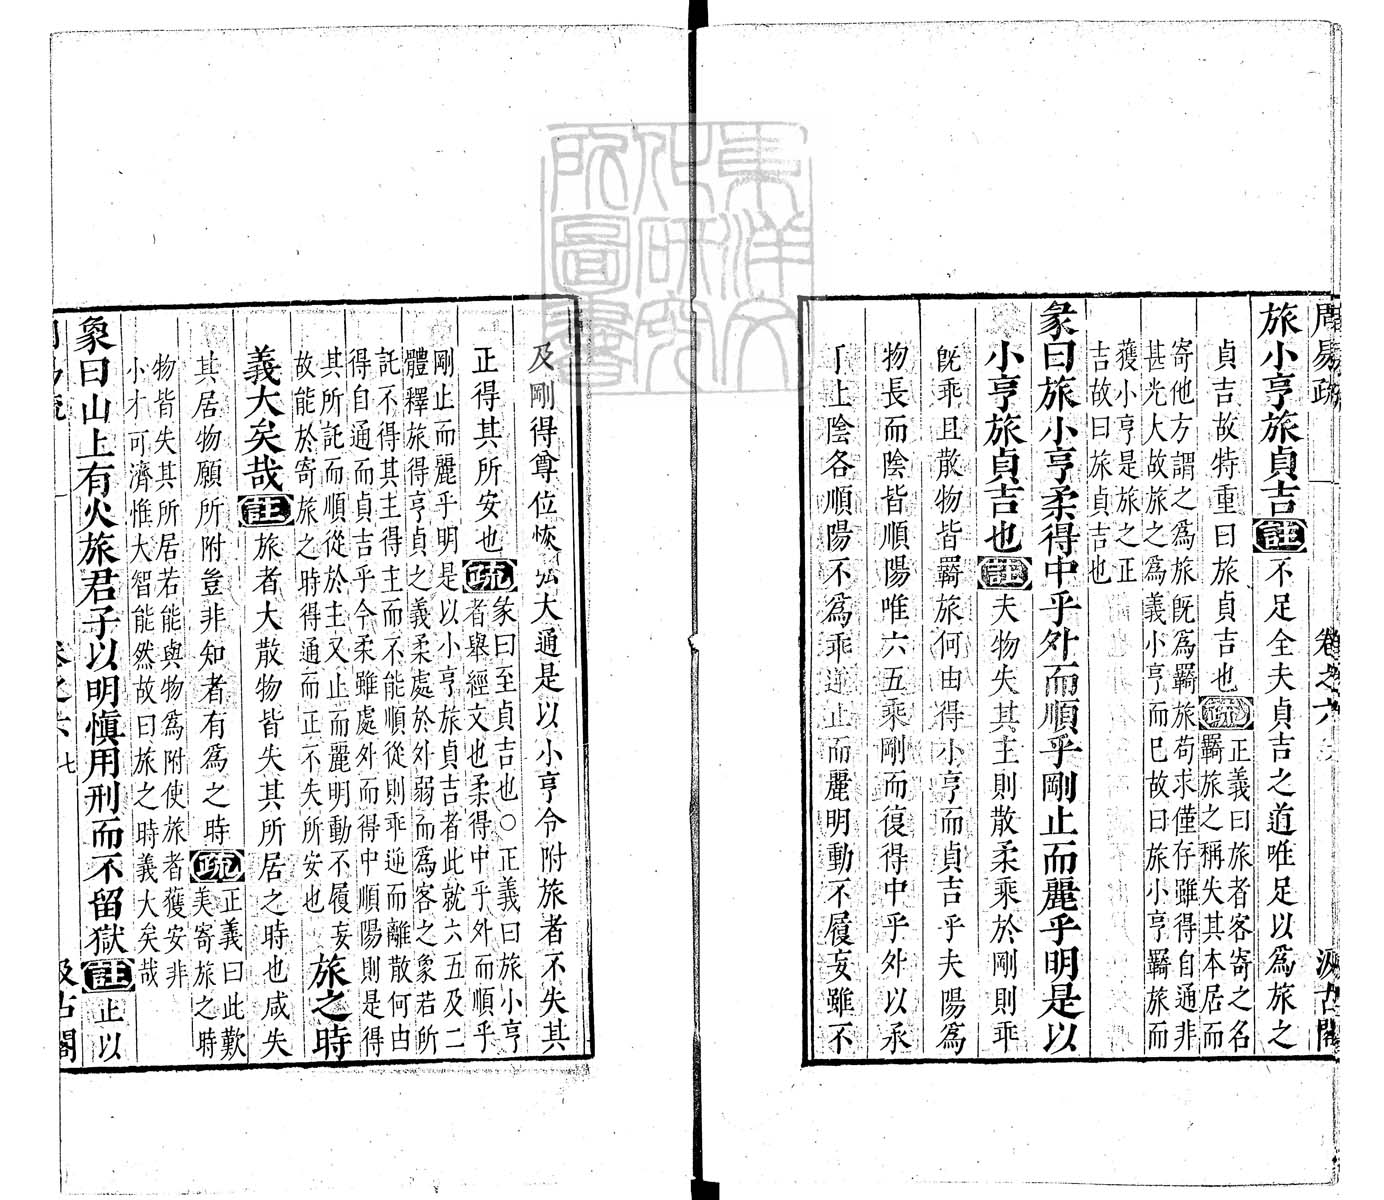 周易疏 卷之六 汲古閣
旅小亨旅貞吉註不足全夫貞吉之道唯足以為旅之
貞吉故特重曰旅貞吉也疏正義曰旅者客寄之名
羇旅之稱失其本居而
寄他方謂之為旅旣為羇旅苟求僅仔雖得自通非
甚光大故旅之為義小亨而已故曰旅小亨羇旅而
獲小亨是旅之正
吉故曰旅貞吉也
彖曰旅小亨柔得中乎外而順乎剛止而麗乎明是以
小亨旅貞吉也註夫物失其主則散柔乘於剛則乖
旣乖且散物皆羇旅何由得小亨而貞吉乎夫陽為
物長而陰皆順陽唯六五乘剛而復得中乎外以承
上陰各順陽不為乖逆止而麗明動不履妄雖不
及剛得尊位恢弘大通是以小亨令附旅者不失其
正得其所安也疏彖曰至貞吉也○正義曰旅小亨
者舉經文也柔得中乎外而順乎
剛止而麗乎明是以小亨旅貞吉者此就六五及二
體釋旅得亨貞之義柔處於外弱而為客之象若所
託不得其主得主而不能順從則乖逆而離散何由
得自通而貞吉乎今柔雖處外而得中順陽則是得
其所託而順從於主又止而麗明動不履妄
故能於寄旅之時得通而正不失所安也
旅之時
義大矣哉註旅者大散物皆失其所居之時也咸失
其居物願所附豈非知者有為之時疏正義曰此歎
美寄旅之時
物皆失其所居若能與物為附使旅者獲安非
小才可濟惟大智能然故曰旅之時義大矣哉
象曰山上有火旅君子以明愼用刑而不留獄註止以
卷之六 七 汲古閣
東洋文化研究所圖書